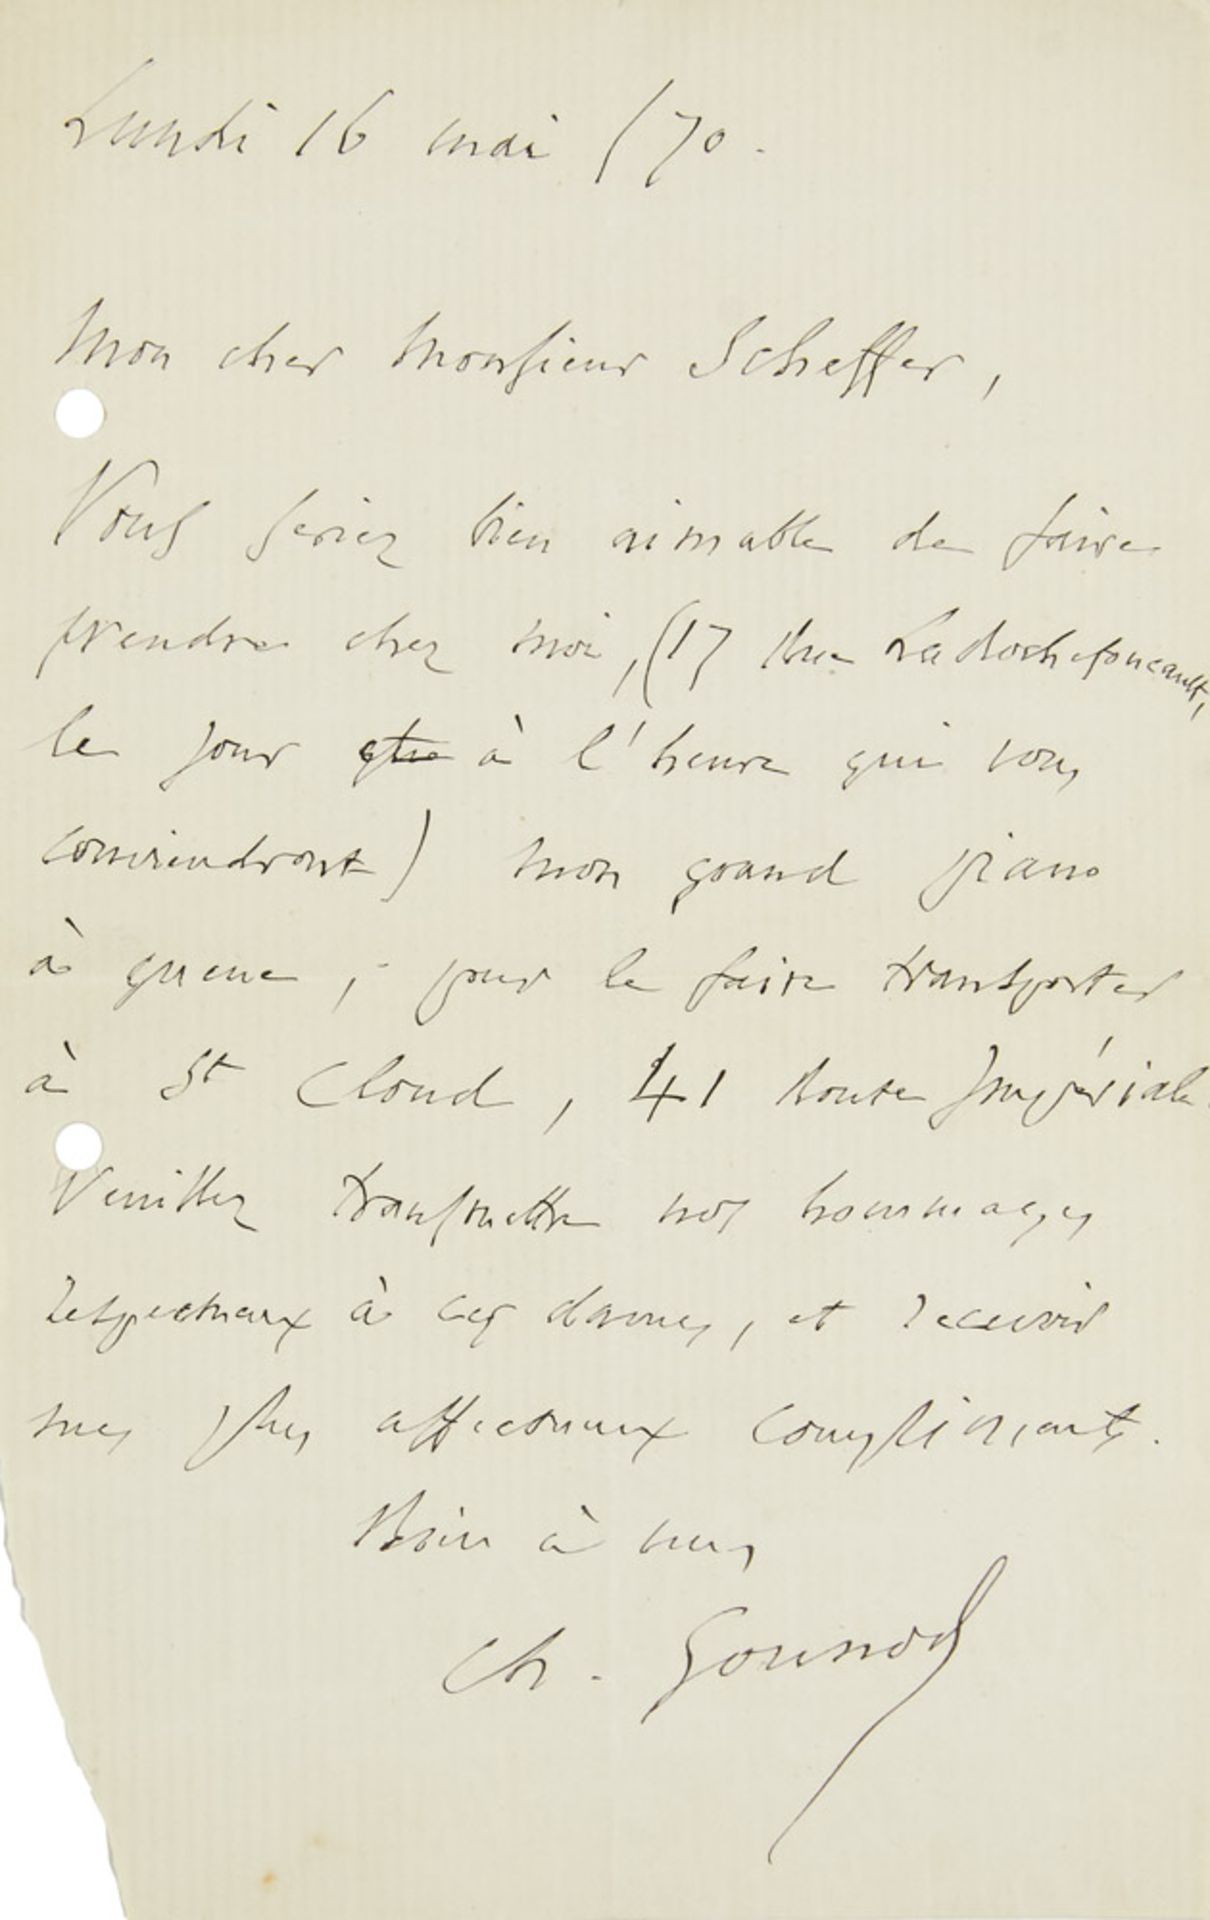 Lundi 16 mai /70.
Mon cher Monsieur Scheffer,
Vous seriez bien aimable de faire
prendre chez moi, (17 Rue LaRochefoucault,
le jour que à l'heure qui vous
conviendront) mon grand piano
à queue, pour le faire transporter
à St Cloud, 41 Route Impériale.
Veuillez transmettre nos hommages
respectueux à ces dames, et recevoir
mes plus affectueux compliments.
Bien à vous
Ch. Gounod